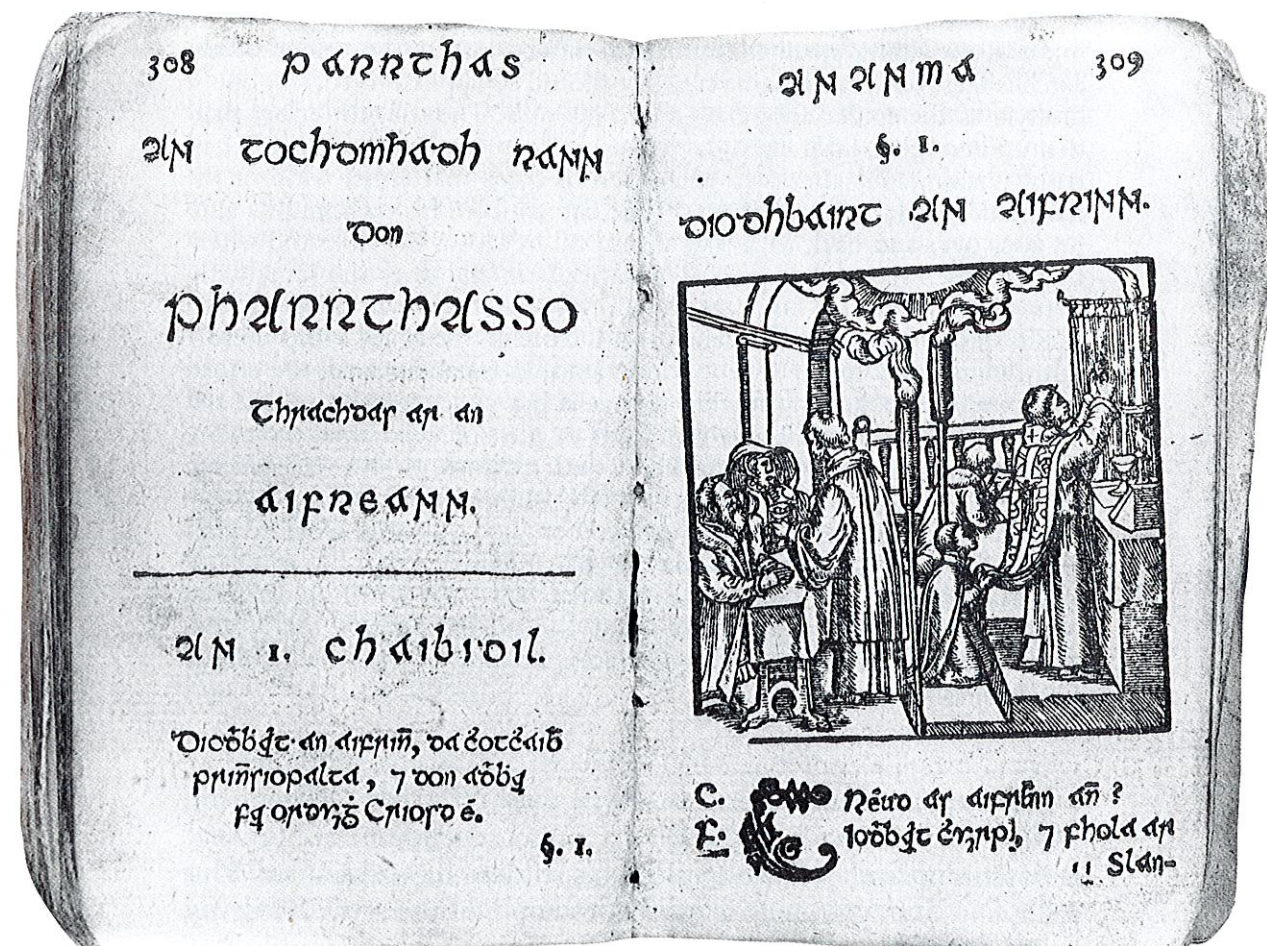 308 PARRTHAS
AN TOCHDMHADH RANN
Don
PHARRTHASSO
Thrachdas ar an
AIFREANN.
AN 1. CHAIBIDIL.
Dioḋḃairt an aifrin̄, da ċotċaiḃ
prin̄siopalta, ⁊ don aḋḃar
far orduiġ Criosd é.
§. 1.
AN ANMA 309
§. 1.
DIODHBAIRT AN AIFRINN.
C. CRéud as aifrionn an̄?
F. Dioḋḃairt ċuirp, ⁊ fhola ar
Slán-